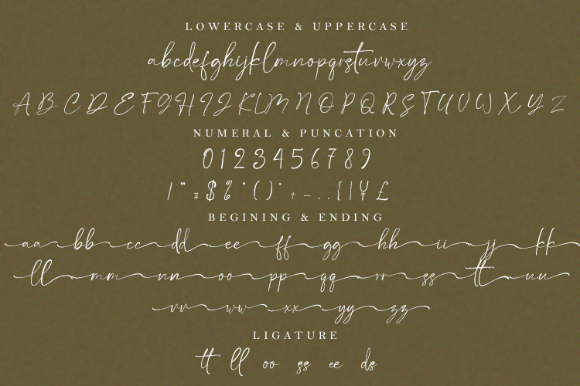 LOWERCASE & UPPERCASE
abcdefghijklmnopqrstuvwxyz
ABCDEFGHIJKLMNOPQRSTUVWXYZ
NUMERAL & PUNCATION
0123456789
! " = $ % " ( ) * + - . . { | } ¥ £
BEGINING & ENDING
aa bb cc dd ee ff gg hh ii jj kk
ll mm nn oo pp qq rr ss tt uu
vv ww xx yy zz
LIGATURE
tt ll oo ss ee ds